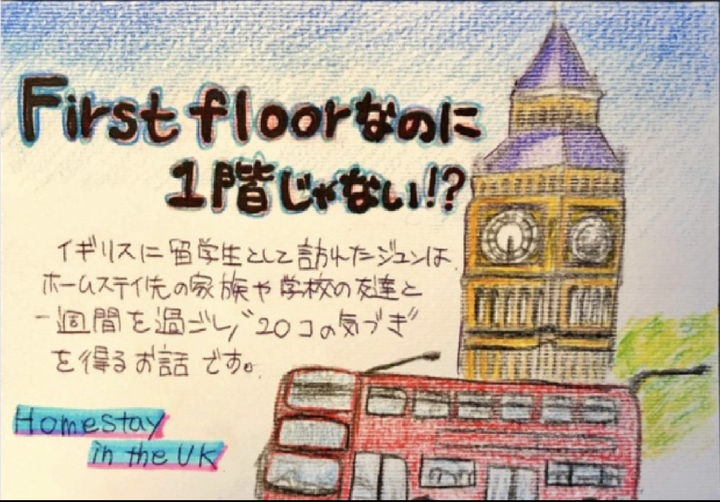 First floorなのに
1階じゃない!?
イギリスに留学生として訪れたジュンは
ホームステイ先の家族や学校の友達と
一週間を過ごし、20コの気づき
を得るお話です。
Homestay
in the UK